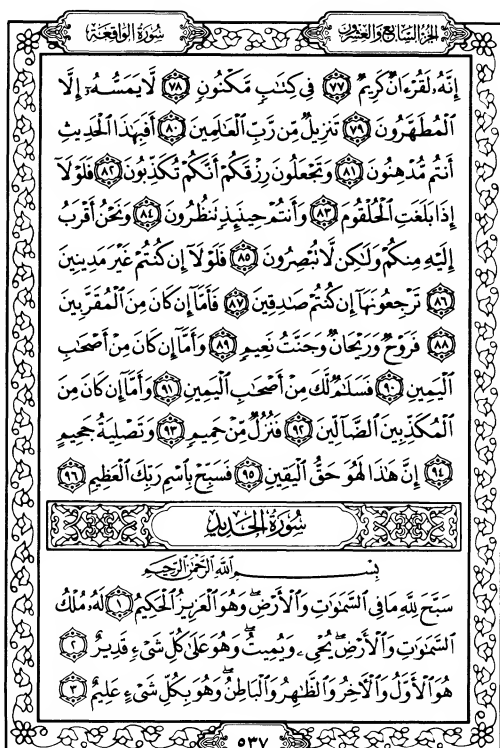 الجزء السابع والعشرون
سورة الواقعة
إِنَّهُۥ لَقُرْءَانٌ كَرِيمٌ ۝٧٧ فِى كِتَٰبٍ مَّكْنُونٍ ۝٧٨ لَّا يَمَسُّهُۥٓ إِلَّا
ٱلْمُطَهَّرُونَ ۝٧٩ تَنزِيلٌ مِّن رَّبِّ ٱلْعَٰلَمِينَ ۝٨٠ أَفَبِهَٰذَا ٱلْحَدِيثِ
أَنتُم مُّدْهِنُونَ ۝٨١ وَتَجْعَلُونَ رِزْقَكُمْ أَنَّكُمْ تُكَذِّبُونَ ۝٨٢ فَلَوْلَآ
إِذَا بَلَغَتِ ٱلْحُلْقُومَ ۝٨٣ وَأَنتُمْ حِينَئِذٍ تَنظُرُونَ ۝٨٤ وَنَحْنُ أَقْرَبُ
إِلَيْهِ مِنكُمْ وَلَٰكِن لَّا تُبْصِرُونَ ۝٨٥ فَلَوْلَآ إِن كُنتُمْ غَيْرَ مَدِينِينَ
۝٨٦ تَرْجِعُونَهَآ إِن كُنتُمْ صَٰدِقِينَ ۝٨٧ فَأَمَّآ إِن كَانَ مِنَ ٱلْمُقَرَّبِينَ
۝٨٨ فَرَوْحٌ وَرَيْحَانٌ وَجَنَّتُ نَعِيمٍ ۝٨٩ وَأَمَّآ إِن كَانَ مِنْ أَصْحَٰبِ
ٱلْيَمِينِ ۝٩٠ فَسَلَٰمٌ لَّكَ مِنْ أَصْحَٰبِ ٱلْيَمِينِ ۝٩١ وَأَمَّآ إِن كَانَ مِنَ
ٱلْمُكَذِّبِينَ ٱلضَّآلِّينَ ۝٩٢ فَنُزُلٌ مِّنْ حَمِيمٍ ۝٩٣ وَتَصْلِيَةُ جَحِيمٍ
۝٩٤ إِنَّ هَٰذَا لَهُوَ حَقُّ ٱلْيَقِينِ ۝٩٥ فَسَبِّحْ بِٱسْمِ رَبِّكَ ٱلْعَظِيمِ ۝٩٦
سُورَةُ الحَدِيدِ
بِسْمِ ٱللَّهِ ٱلرَّحْمَٰنِ ٱلرَّحِيمِ
سَبَّحَ لِلَّهِ مَا فِى ٱلسَّمَٰوَٰتِ وَٱلْأَرْضِ ۖ وَهُوَ ٱلْعَزِيزُ ٱلْحَكِيمُ ۝١ لَهُۥ مُلْكُ
ٱلسَّمَٰوَٰتِ وَٱلْأَرْضِ ۖ يُحْىِۦ وَيُمِيتُ ۖ وَهُوَ عَلَىٰ كُلِّ شَىْءٍ قَدِيرٌ ۝٢
هُوَ ٱلْأَوَّلُ وَٱلْءَاخِرُ وَٱلظَّٰهِرُ وَٱلْبَاطِنُ ۖ وَهُوَ بِكُلِّ شَىْءٍ عَلِيمٌ ۝٣
٥٣٧